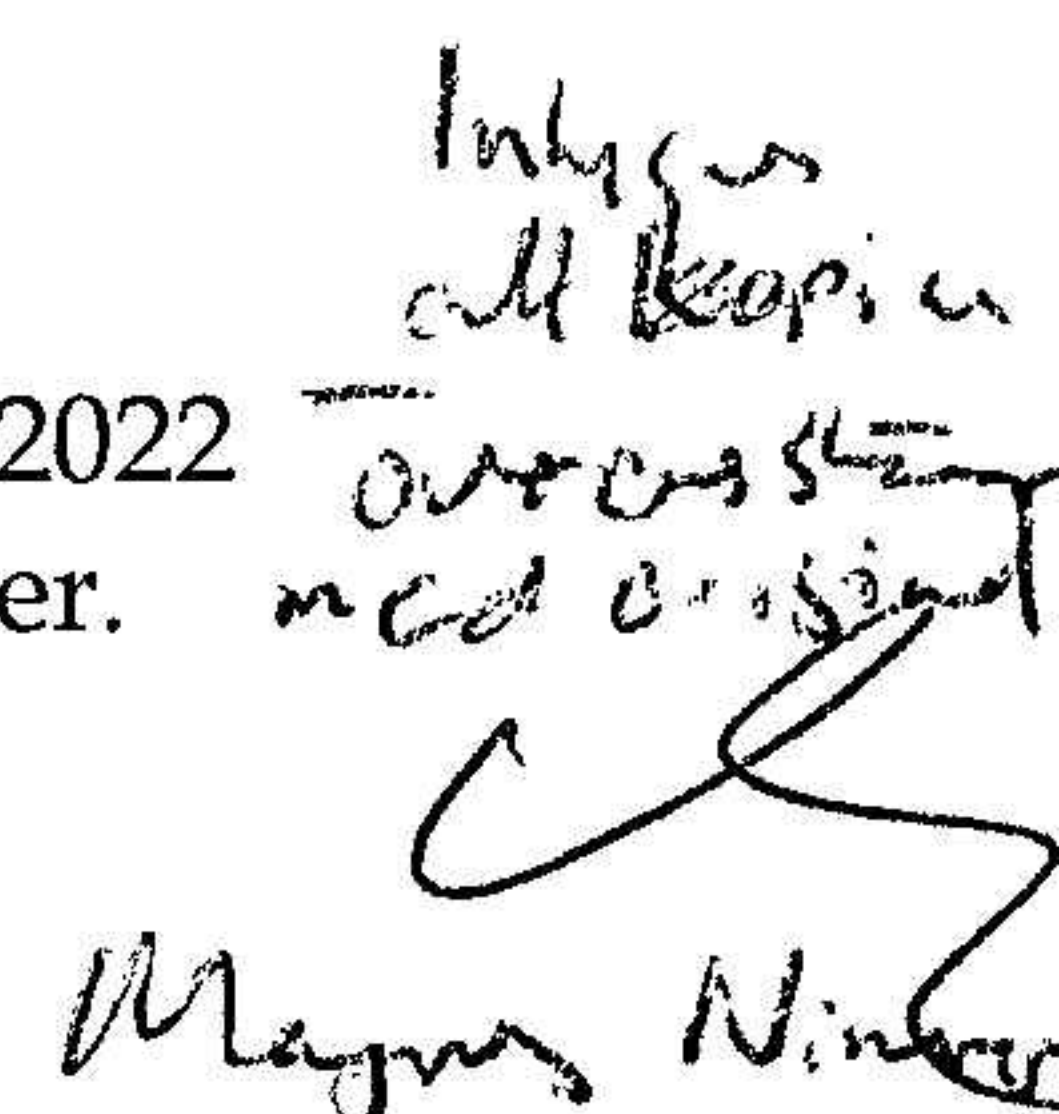 Intygas
att kopian
2022
överensstämmer
er.
med original
Magnus